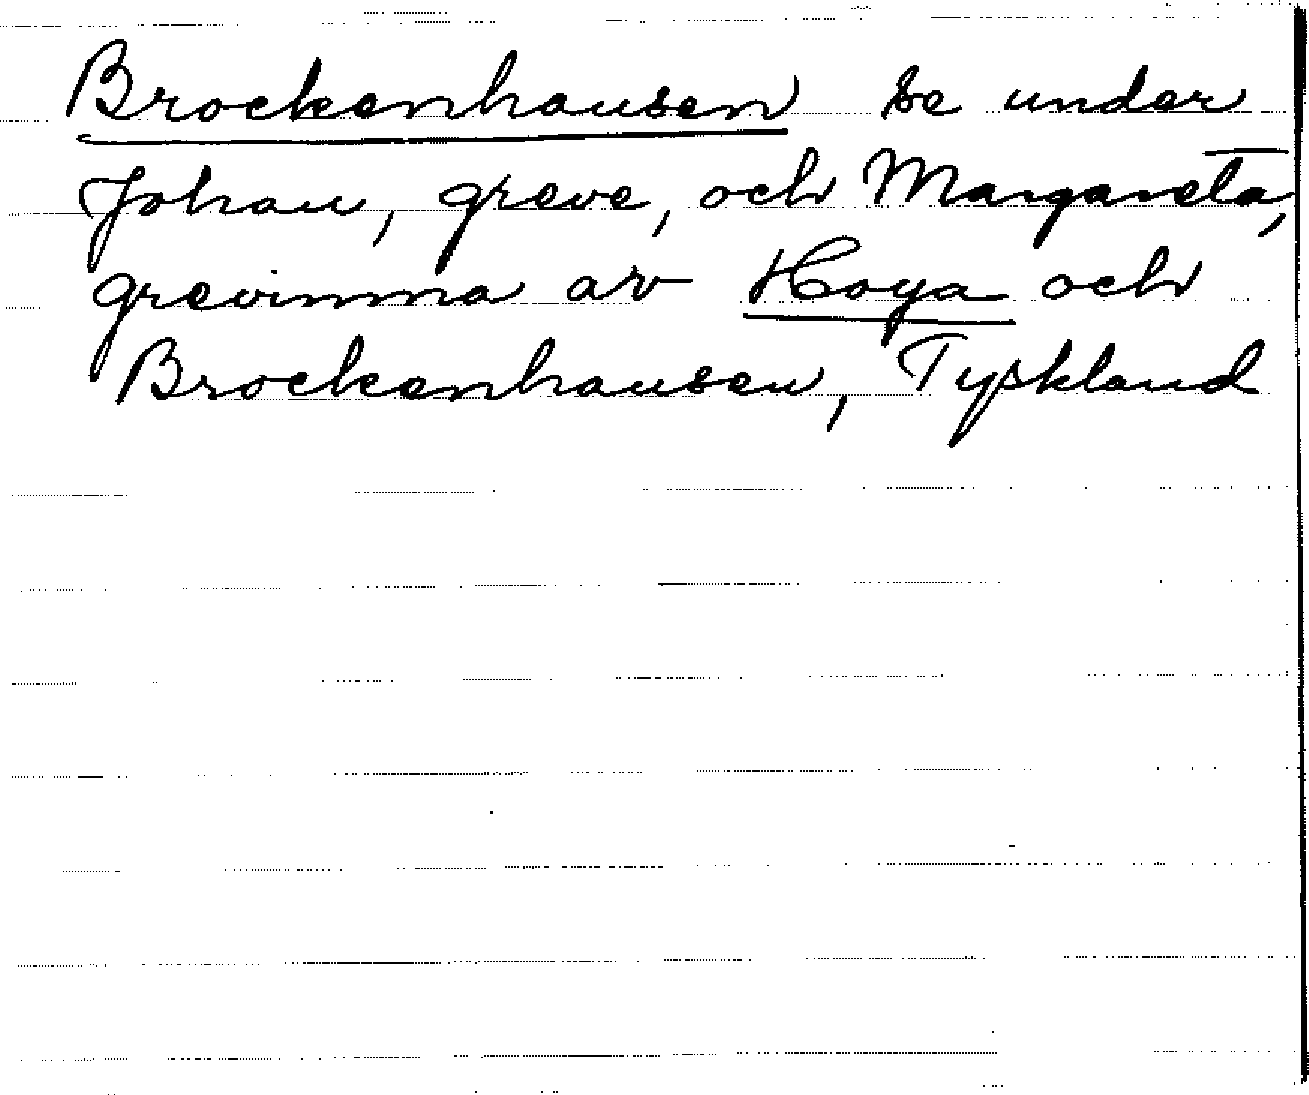 Brockenhausen se under
Johan, greve, och Margareta,
grevinna av Hoya och
Brockenhausen, Tyskland